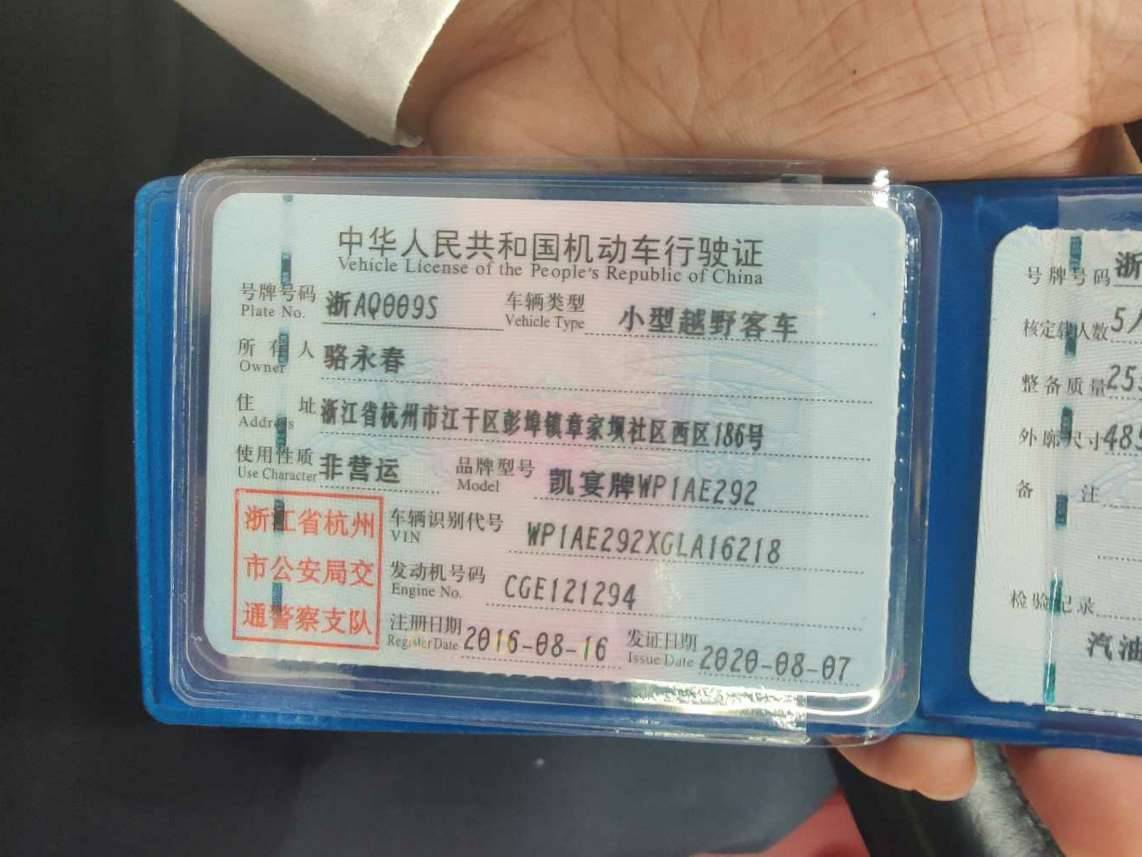 中华人民共和国机动车行驶证
Vehicle License of the People's Republic of China
号牌号码 浙AQ009S 车辆类型 小型越野客车
Plate No. Vehicle Type
所有人 骆永春
Owner
住址 浙江省杭州市江干区彭埠镇章家坝社区西区186号
Address
使用性质 非营运 品牌型号 凯宴牌WP1AE292
Use Character Model
浙江省杭州
市公安局交
通警察支队
车辆识别代号 WP1AE292XGLA16218
VIN
发动机号码 CGE121294
Engine No.
注册日期 2016-08-16 发证日期 2020-08-07
Register Date Issue Date
号牌号码 浙
核定载人数 5人
整备质量 25
外廓尺寸 485
备注
检验记录
汽油